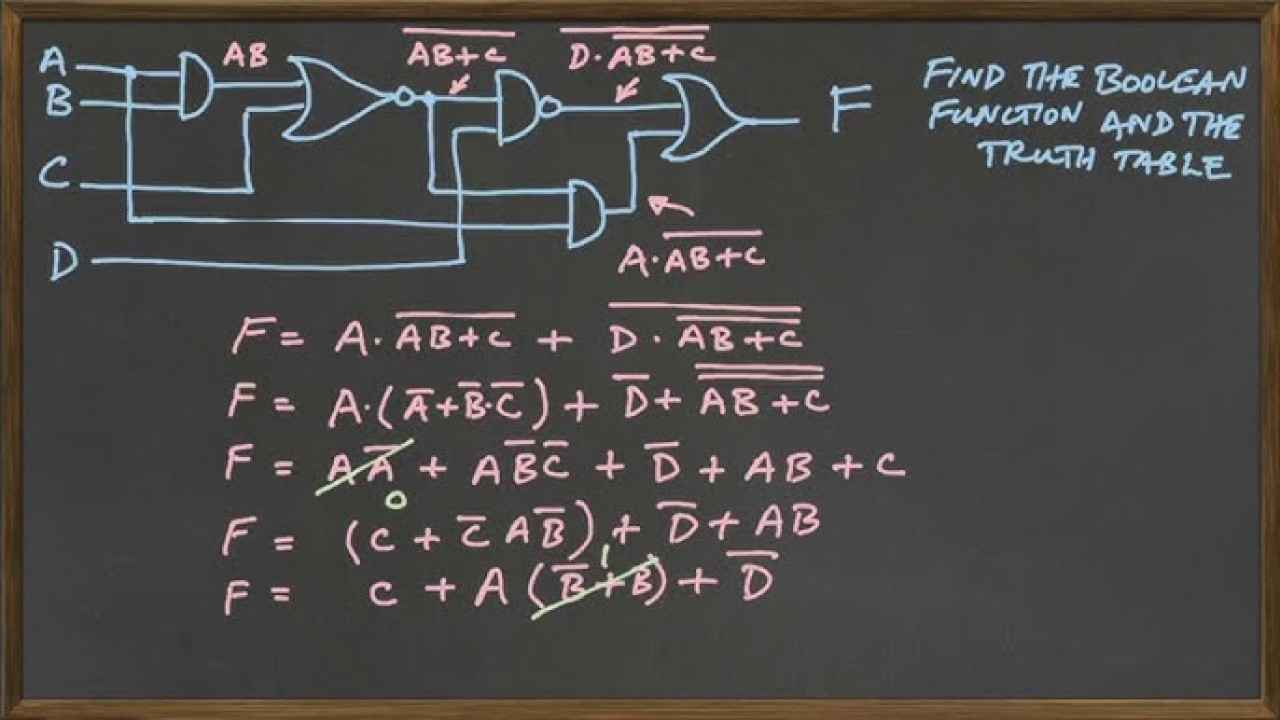 A
B
C
D
AB
A̅B̅+̅C̅
D·A̅B̅+̅C̅ (overlined)
A·A̅B̅+̅C̅
F
FIND THE BOOLEAN
FUNCTION AND THE
TRUTH TABLE
F = A·\overline{AB+C} + \overline{D·\overline{AB+C}}
F = A·(\overline{A}+\overline{B}·\overline{C}) + \overline{D} + \overline{\overline{AB+C}}
F = A\overline{A} + A\overline{B}\overline{C} + \overline{D} + AB + C
0
F = (C + \overline{C}A\overline{B}) + \overline{D} + AB
1
F = C + A(\overline{B}+B) + \overline{D}